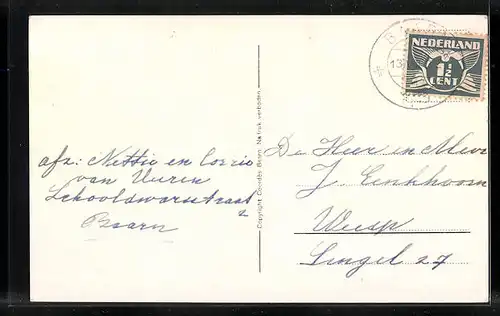 BAARN
13
NEDERLAND
1½
CENT
afz: Nettie en Corrie
van Vuren
Schooldwarsstraat
2
Baarn
Copyright Coördes Baarn. Nadruk verboden.
De Heer en Mevr
J Eenkhoorn
Weesp
Singel 27